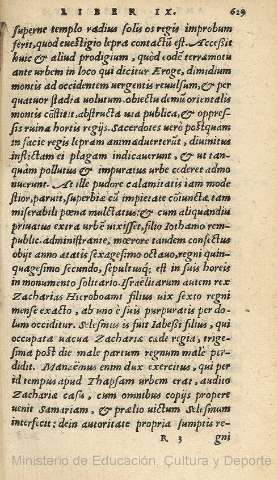 LIBER IX. 629
superne templo radius solis os regis improbum
ferit, quod euestigio lepra contactũ est. Accessit
huic & aliud prodigium, quòd eodẽ terræmotu
ante urbem in loco qui dicitur Eroge, dimidium
montis ad occidentem uergentis reuulsum, & per
quatuor stadia uolutum, obiectu demũ orientalis
montis cõstitit, abstructa uia publica, & oppres-
sis ruina hortis regijs. Sacerdotes uerò postquam
in facie regis lepram animaduerterũt, diuinitus
inflictam ei plagam indicauerunt, & ut tan-
quàm pollutus & impuratus urbe cederet admo
nuerunt. At ille pudore calamitatis iam mode
stior, paruit, superbiæ cũ impietate cõiunctæ tam
miserabili pœna mulctatus: & cum aliquandiu
priuatus extra urbẽ uixisset, filio Iothamo rem-
public. administrante, mœrore tandem confectus
obijt anno ætatis sexagesimo octauo, regni quin-
quagesimo secundo, sepultusq; est in suis horteis
in monumento solitario. Israëlitarum autem rex
Zacharias Hieroboami filius uix sexto regni
mense exacto, ab uno è suis purpuratis per do-
lum occiditur. Selesmus is fuit Iabessi filius, qui
occupata uacua Zachariæ cæde regia, trige-
sima post die malè partum regnum malè per-
didit. Manæmus enim dux exercitus, qui per
id tempus apud Thapsam urbem erat, audito
Zachariæ casu, cum omnibus copijs propere
uenit Samariam, & prælio uictum Selesmum
interfecit: dein autoritate propria sumptis re-
R 3 gni
Ministerio de Educación, Cultura y Deporte